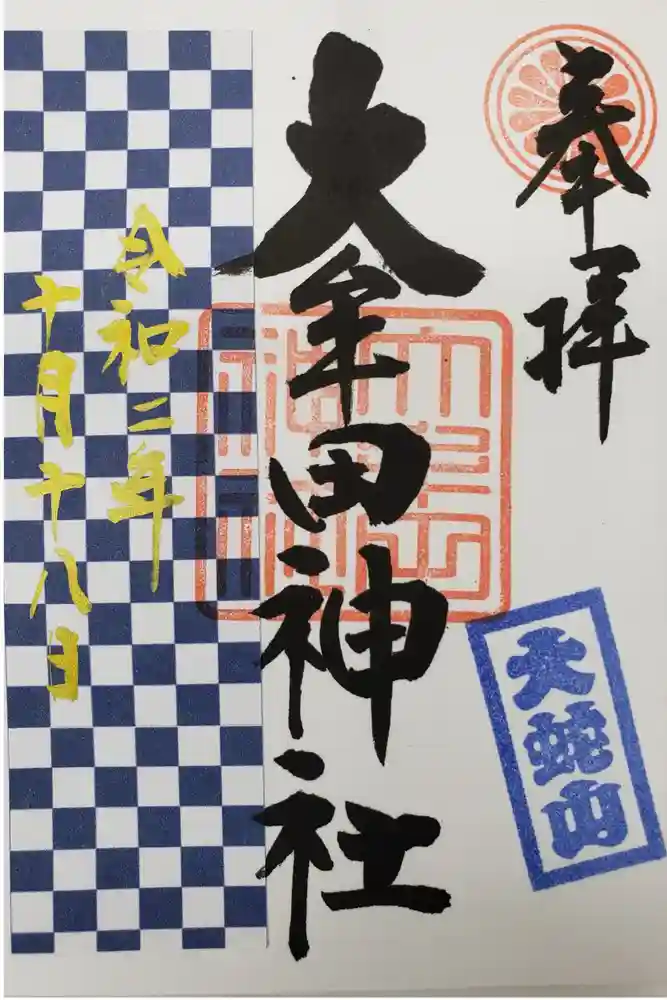 奉拝
大蛇山
大牟田神社
令和二年
十月十八日